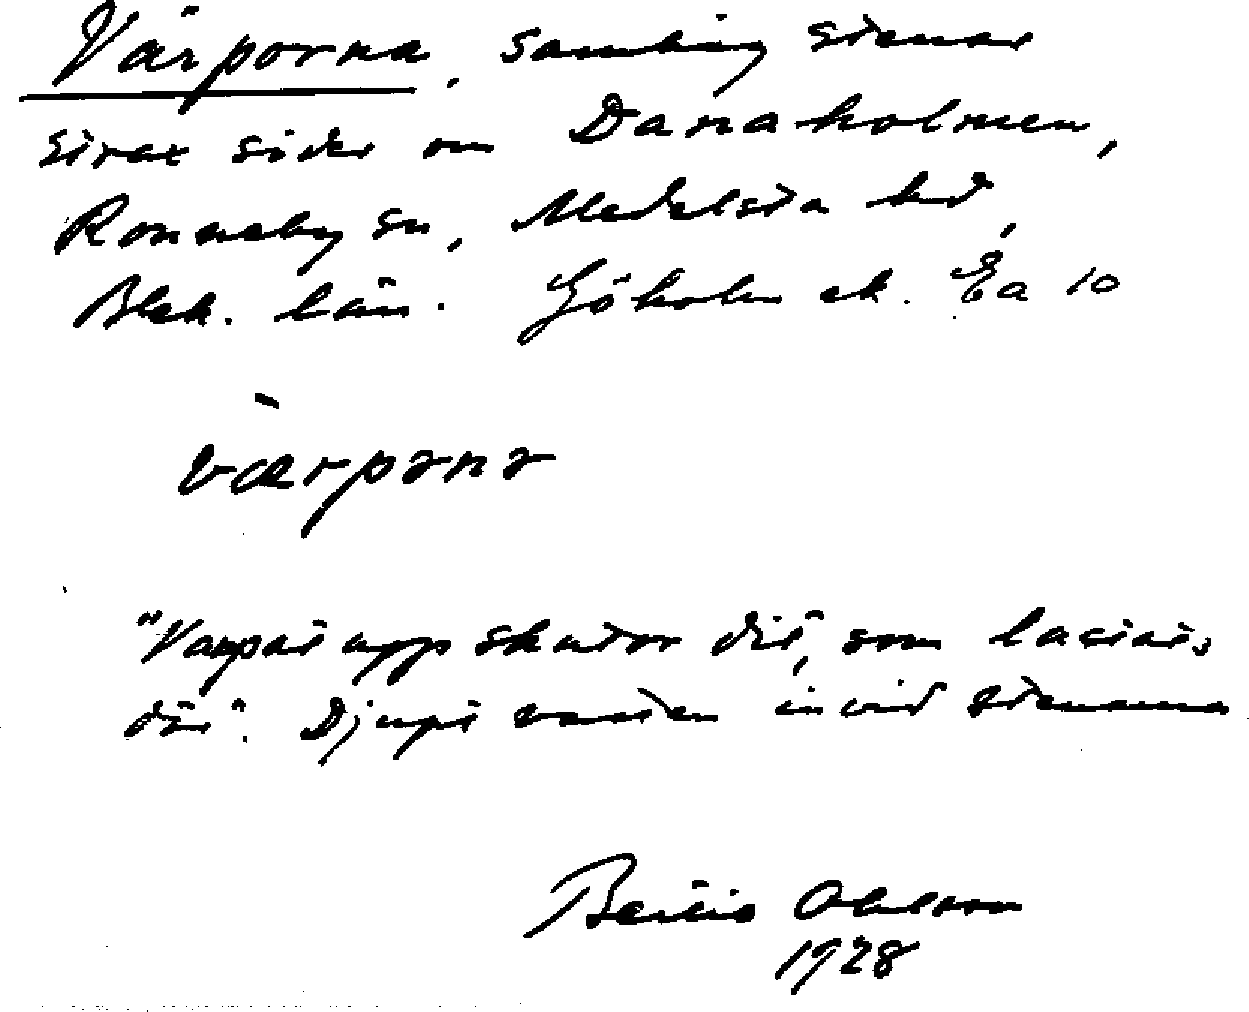 Värporna, samling stenar
strax söder om Danaholmen,
Ronneby sn, Medelsta hd,
Blek. län. Göholm ek. Ea 10
værpərnə
"Varpat upp skutor dit, som lastats
där". Djupt vatten invid stenarna
Bertil Ohlsson
1928